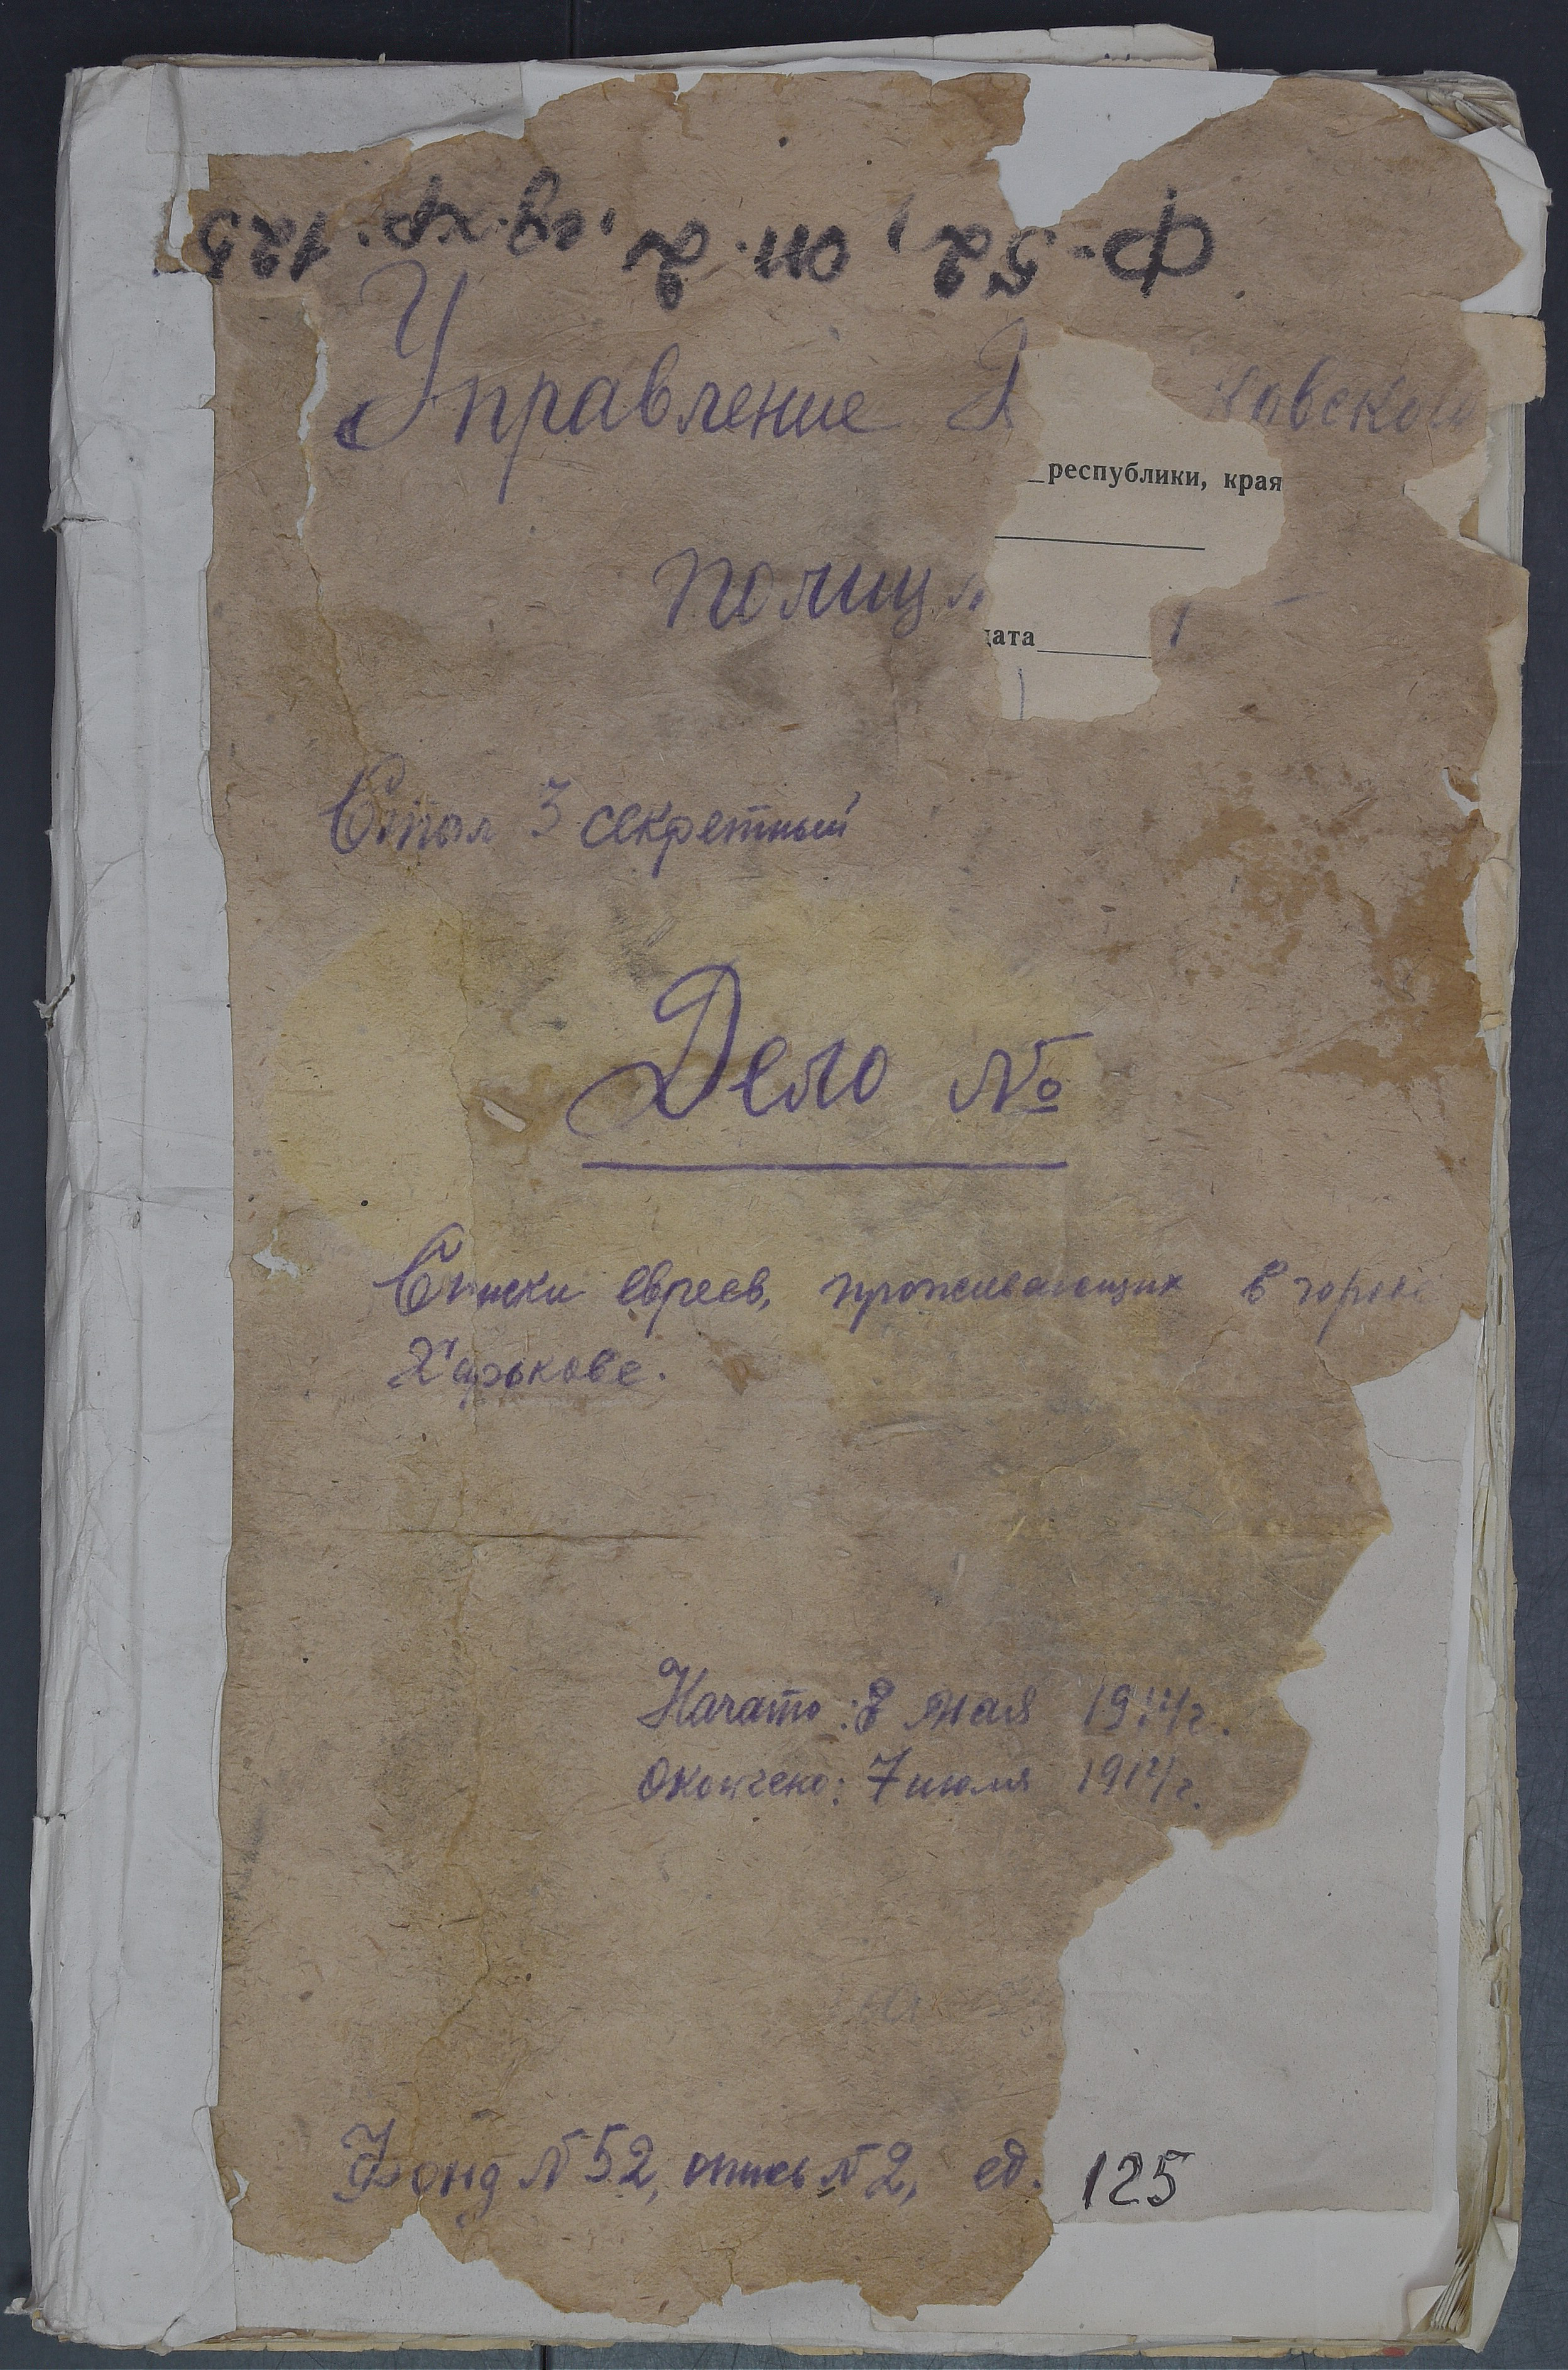 Ф. 52, оп. 2, ед. хр. 125
Управление Х ковской
республики, края
полиц
дата
Стол 3 секретный
Дело №
Списки евреев, проживающих в городе
Харькове.
Начато: 8 мая 1914 г.
Окончено: 7 июля 1914 г.
Фонд № 52, опись № 2, ед. 125